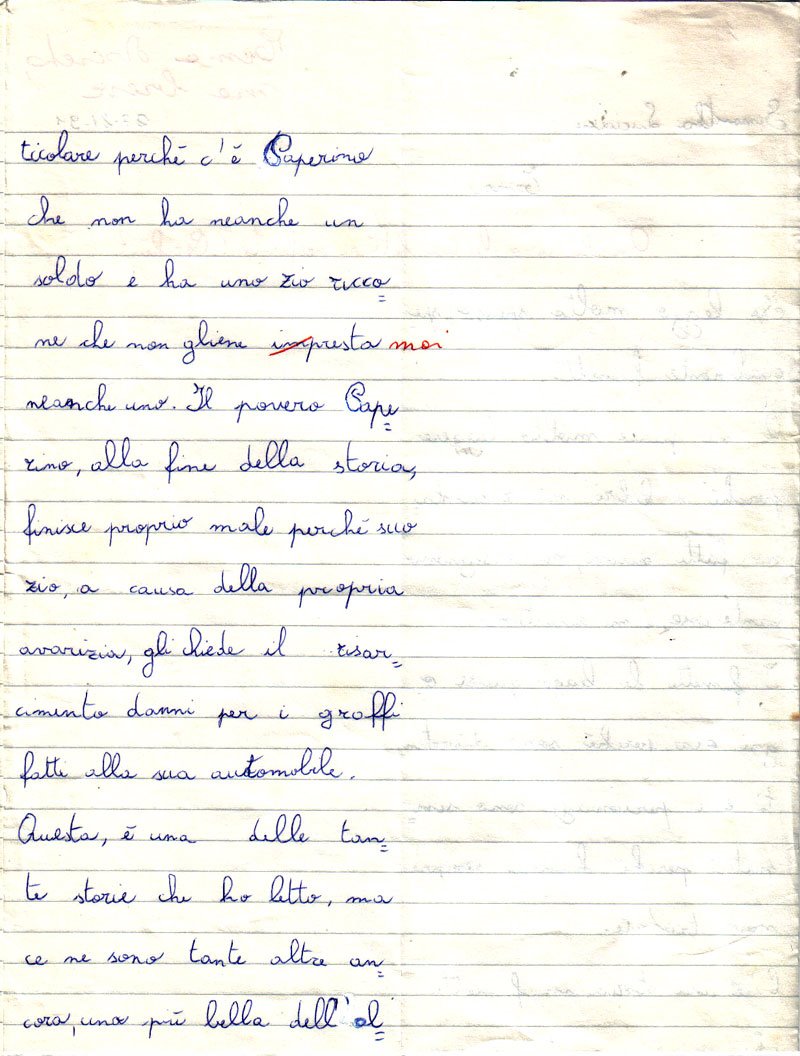 ticolare perché c'é Paperino
che non ha neanche un
soldo e ha uno zio ricco=
ne che non gliene impresta mai
neanche uno. Il povero Pape=
rino, alla fine della storia,
finisce proprio male perché suo
zio, a causa della propria
avarizia, gli chiede il risar=
cimento danni per i graffi
fatti alla sua automobile.
Questa, é una delle tan=
te storie che ho letto, ma
ce ne sono tante altre an=
cora, una più bella dell'al=